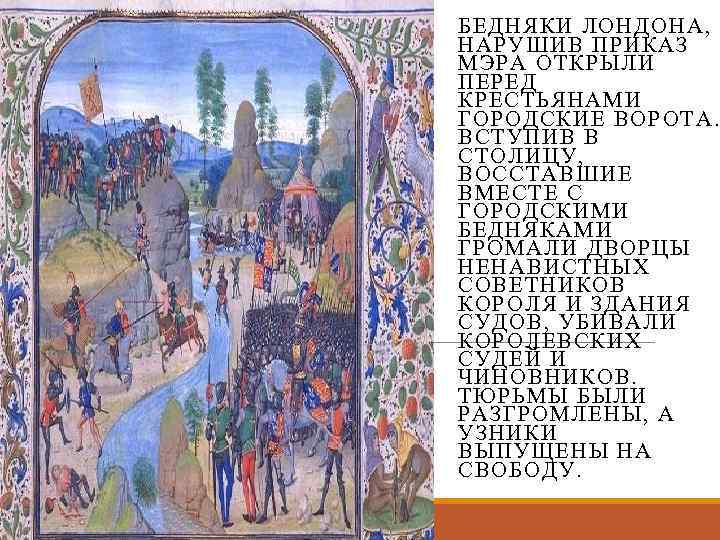 БЕДНЯКИ ЛОНДОНА,
НАРУШИВ ПРИКАЗ
МЭРА ОТКРЫЛИ
ПЕРЕД
КРЕСТЬЯНАМИ
ГОРОДСКИЕ ВОРОТА.
ВСТУПИВ В
СТОЛИЦУ,
ВОССТАВШИЕ
ВМЕСТЕ С
ГОРОДСКИМИ
БЕДНЯКАМИ
ГРОМАЛИ ДВОРЦЫ
НЕНАВИСТНЫХ
СОВЕТНИКОВ
КОРОЛЯ И ЗДАНИЯ
СУДОВ, УБИВАЛИ
КОРОЛЕВСКИХ
СУДЕЙ И
ЧИНОВНИКОВ.
ТЮРЬМЫ БЫЛИ
РАЗГРОМЛЕНЫ, А
УЗНИКИ
ВЫПУЩЕНЫ НА
СВОБОДУ.